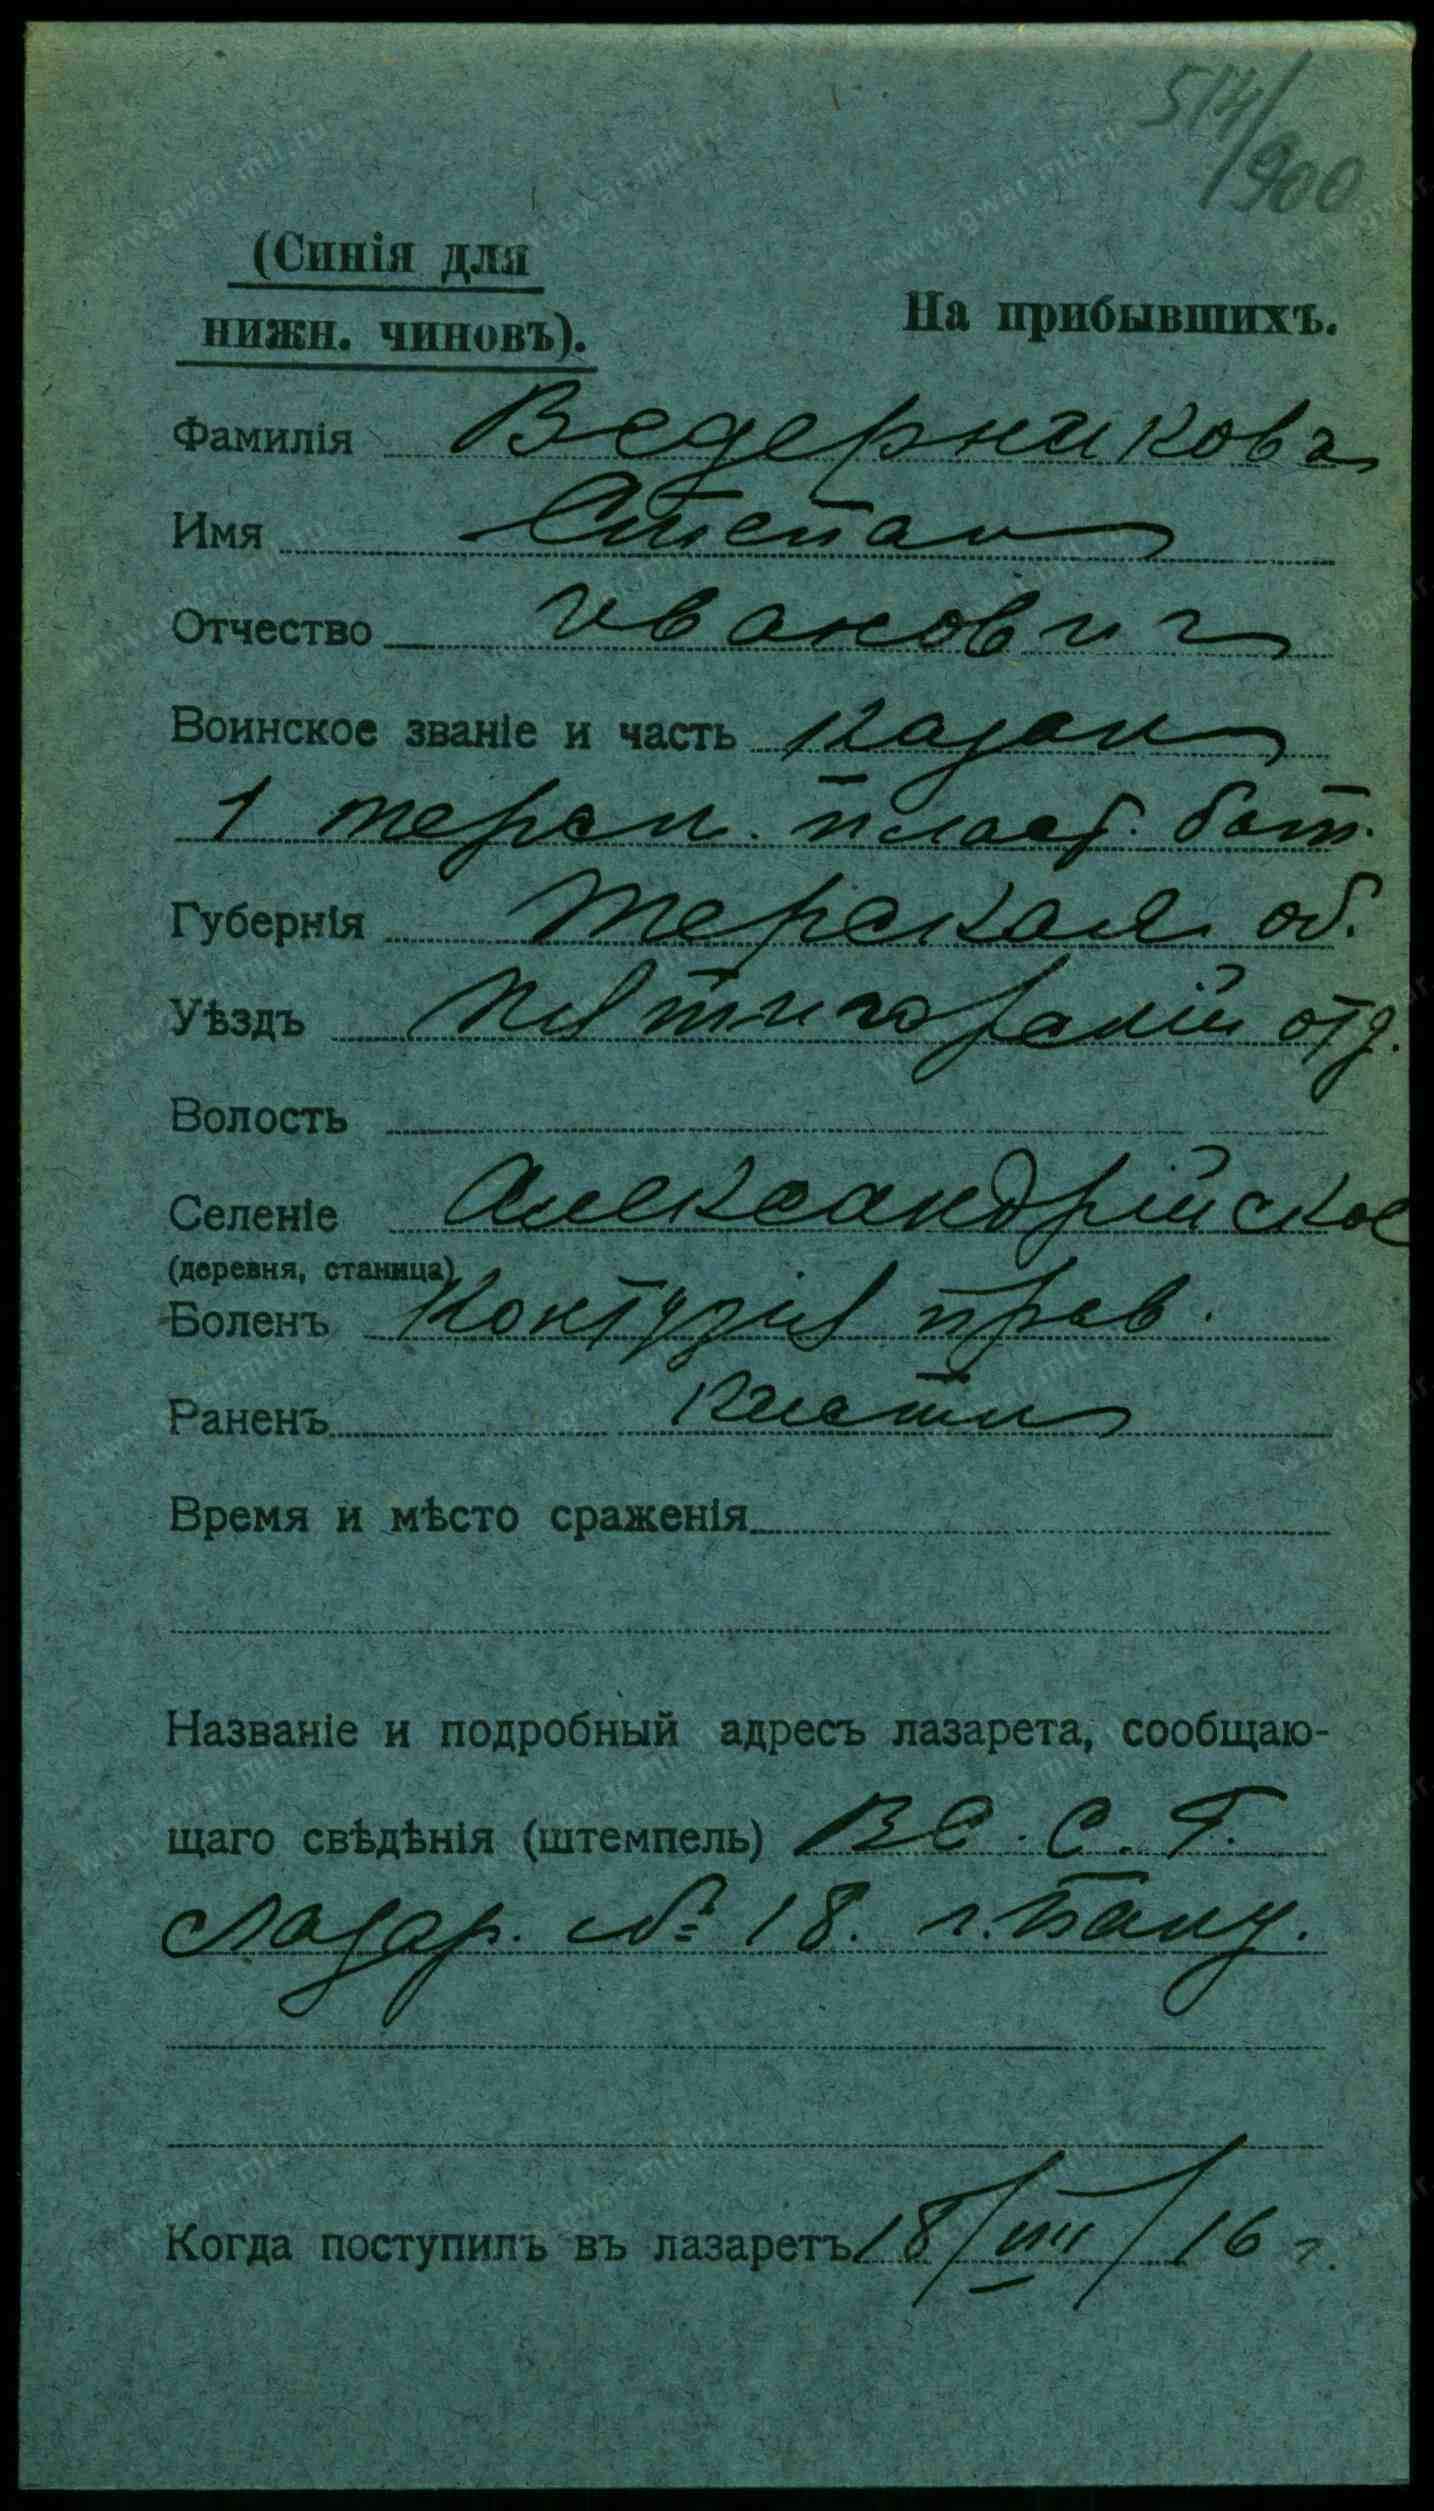 517/900
(Синія для
нижн. чиновъ).
На прибывшихъ.
Фамилія Ведерниковъ
Имя Степан
Отчество Иванович
Воинское званіе и часть казак
1 терск. пласт. бат.
Губернія Терская об.
Уѣздъ Пятигорскій отд.
Волость
Селеніе Александрійское
(деревня, станица)
Боленъ Контузія прав.
Раненъ кисти
Время и мѣсто сраженія
Названіе и подробный адресъ лазарета, сообщаю-
щаго свѣдѣнія (штемпель) В С. С. Г.
Лазар. № 18. г. Баку.
Когда поступилъ въ лазаретъ 18/VIII/16 г.